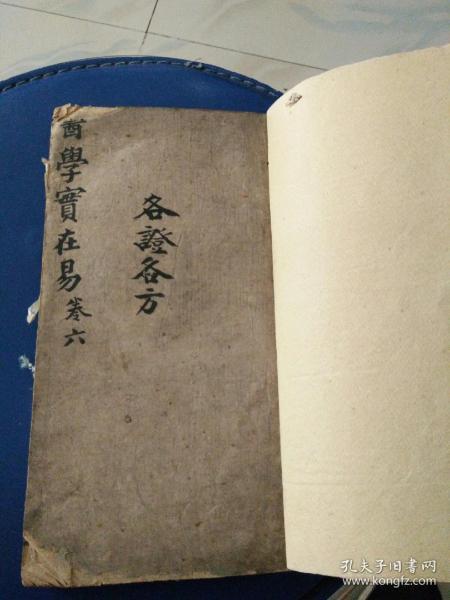 學實在易 卷六
各證各方
孔夫子旧书网
www.kongfz.com